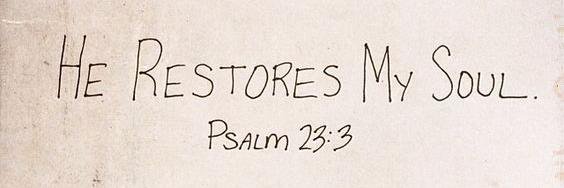 He Restores My Soul.
Psalm 23:3